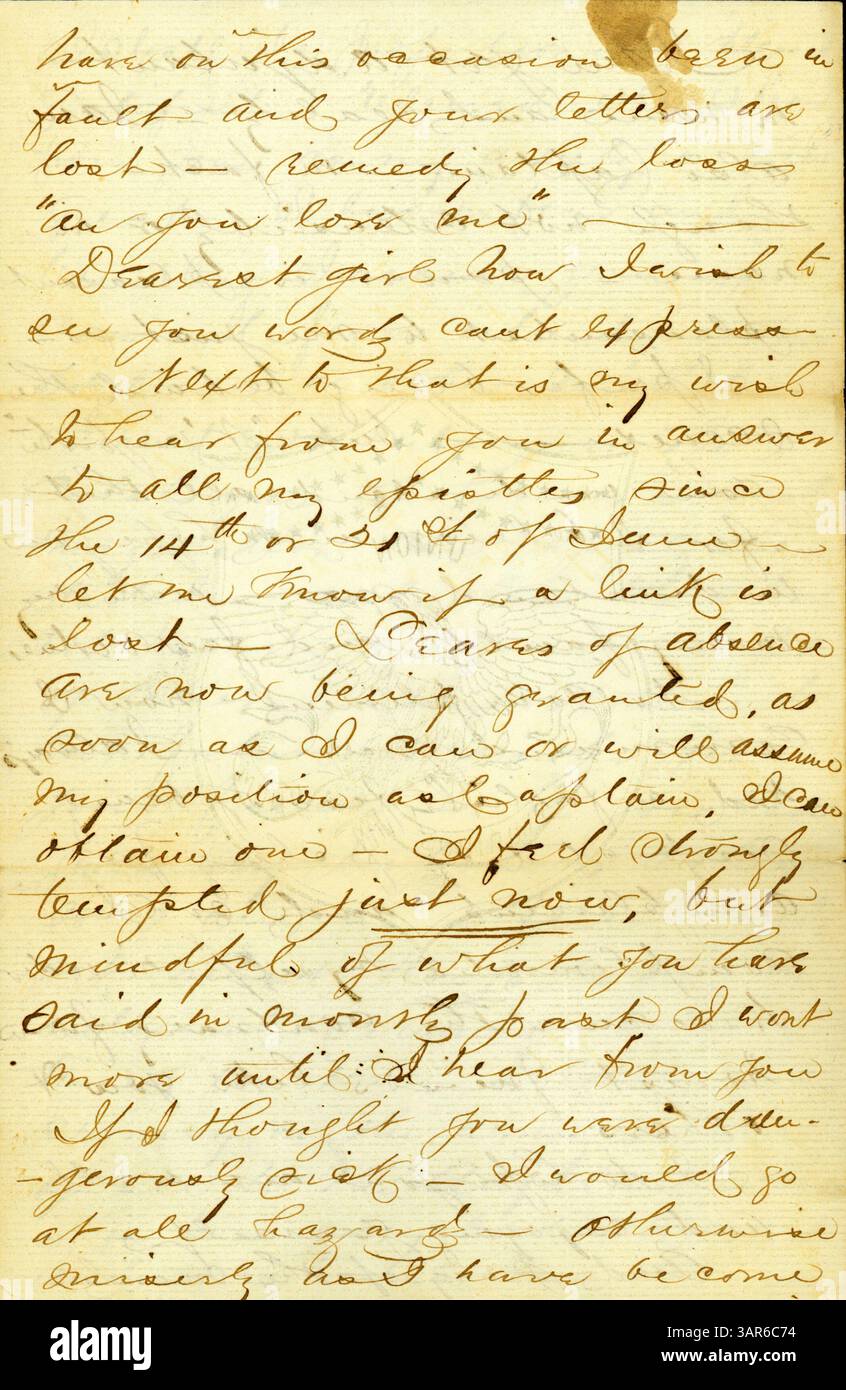 have on this occasion been in
fault and your letters are
lost — remedy the loss
"an you love me" —
Dearest girl how I wish to
see you words cant express
Next to that is my wish
to hear from you in answer
to all my epistles since
the 14th or 21st of June —
let me know if a link is
lost — Leaves of absence
are now being granted, as
soon as I can or will assume
my position as Captain, I can
obtain one — I feel strongly
tempted just now, but
mindful of what you have
said in months past I wont
move until I hear from you
If I thought you were dan-
-gerously sick — I would go
at all hazards — otherwise
miserly as I have become
alamy
Image ID: 3AR6C74
www.alamy.com